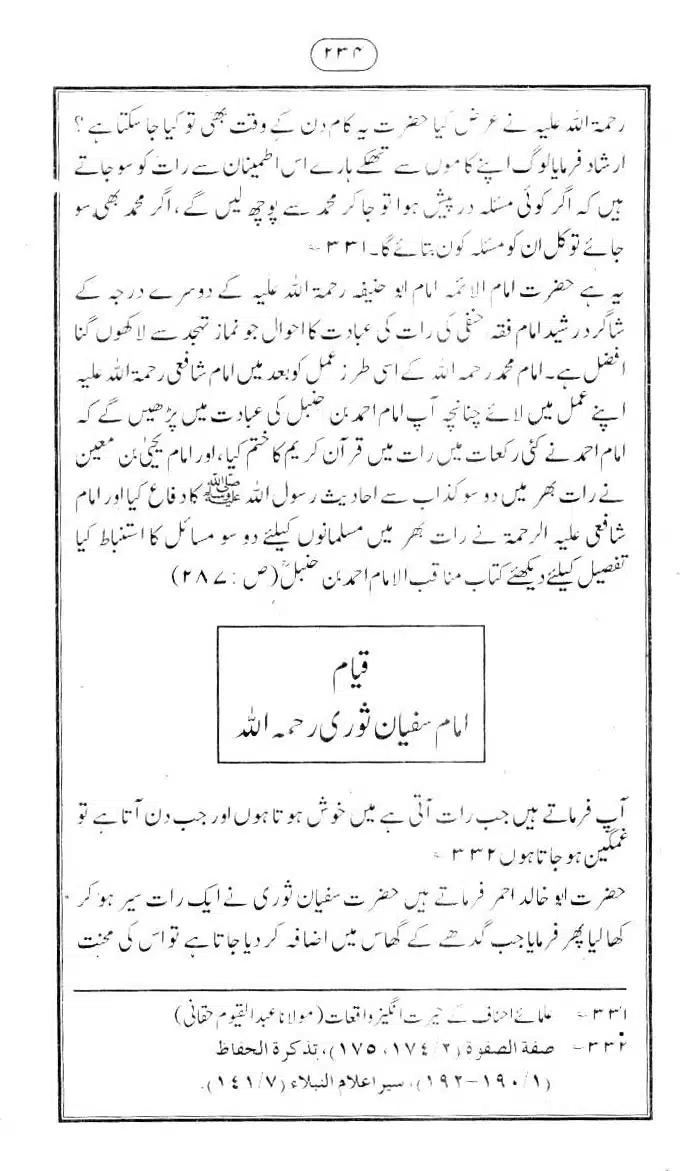 ۲۳۴
رحمۃ اللہ علیہ نے عرض کیا حضرت یہ کام دن کے وقت بھی تو کیا جا سکتا ہے؟
ارشاد فرمایا لوگ اپنے کاموں سے تھکے ہارے اس اطمینان سے رات کو سو جاتے
ہیں کہ اگر کوئی مسئلہ درپیش ہوا تو جا کر محمد سے پوچھ لیں گے، اگر محمد بھی سو
جائے تو کل ان کو مسئلہ کون بتائے گا۔ ۳۳۱؎
یہ ہے حضرت امام الائمہ امام ابو حنیفہ رحمۃ اللہ علیہ کے دوسرے درجہ کے
شاگرد رشید امام فقہ حنفی کی رات کی عبادت کا احوال جو نماز تہجد سے لاکھوں گنا
افضل ہے۔ امام محمد رحمہ اللہ کے اسی طرز عمل کو بعد میں امام شافعی رحمۃ اللہ علیہ
اپنے عمل میں لائے چنانچہ آپ امام احمد بن حنبل کی عبادت میں پڑھیں گے کہ
امام احمد نے کئی رکعات میں رات میں قرآن کریم کا ختم کیا، اور امام یحییٰ بن معین
نے رات بھر میں دو سو کذاب سے احادیث رسول اللہ ﷺ کا دفاع کیا اور امام
شافعی علیہ الرحمۃ نے رات بھر میں مسلمانوں کیلئے دو سو مسائل کا استنباط کیا
تفصیل کیلئے دیکھئے کتاب مناقب الامام احمد بن حنبلؒ (ص: ۲۸۷)
قیام
امام سفیان ثوری رحمہ اللہ
آپ فرماتے ہیں جب رات آتی ہے میں خوش ہوتا ہوں اور جب دن آتا ہے تو
غمگین ہو جاتا ہوں ۳۳۲؎
حضرت ابو خالد احمر فرماتے ہیں حضرت سفیان ثوری نے ایک رات سیر ہو کر
کھا لیا پھر فرمایا جب گدھے کے گھاس میں اضافہ کر دیا جاتا ہے تو اس کی محنت
۳۳۱؎ علمائے احناف کے حیرت انگیز واقعات (مولانا عبدالقیوم حقانی)
۳۳۲؎ صفة الصفوة (۱۷۴/۲، ۱۷۵)، تذكرة الحفاظ
(۱۹۰/۱-۱۹۲)، سير اعلام النبلاء (۱٤۱/۷).